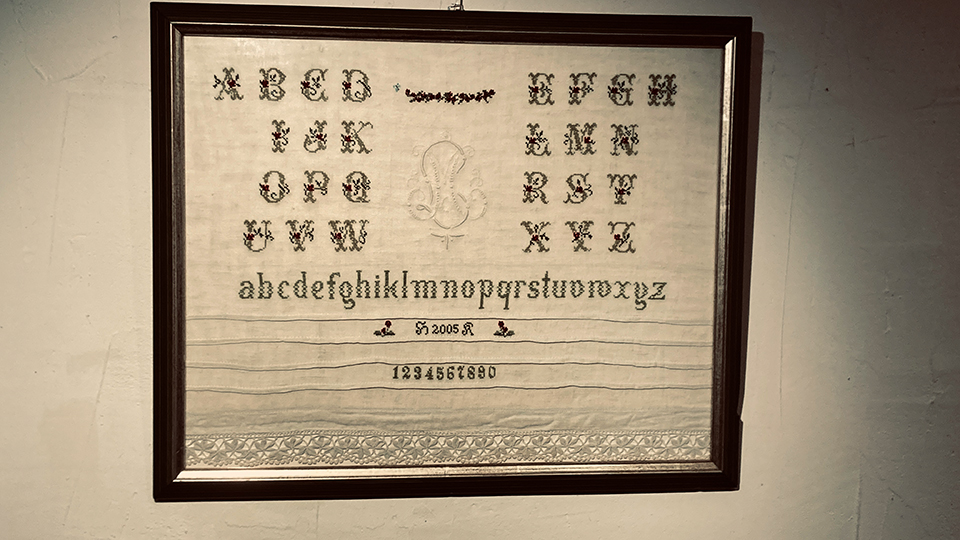 A B C D E F G H
I J K L M N
O P Q R S T
U V W X Y Z
abcdefghiklmnopqrstuvwxyz
2005
1234567890